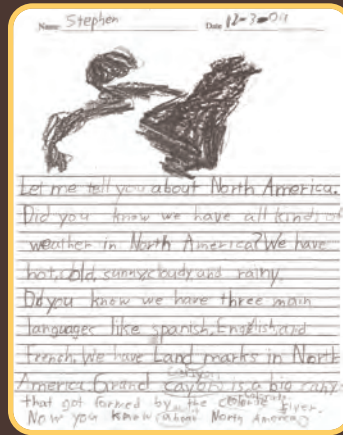 Name Stephen Date 12-3-09
Let me tell you about North America.
Did you know we have all kinds of
weather in North America? We have
hot, cold, sunny, cloudy, and rainy.
Did you know we have three main
languages like spanish, English, and
French. We have Land marks in North
America. Grand Canyon is a big
that got formed by the River.
Now you know about North America